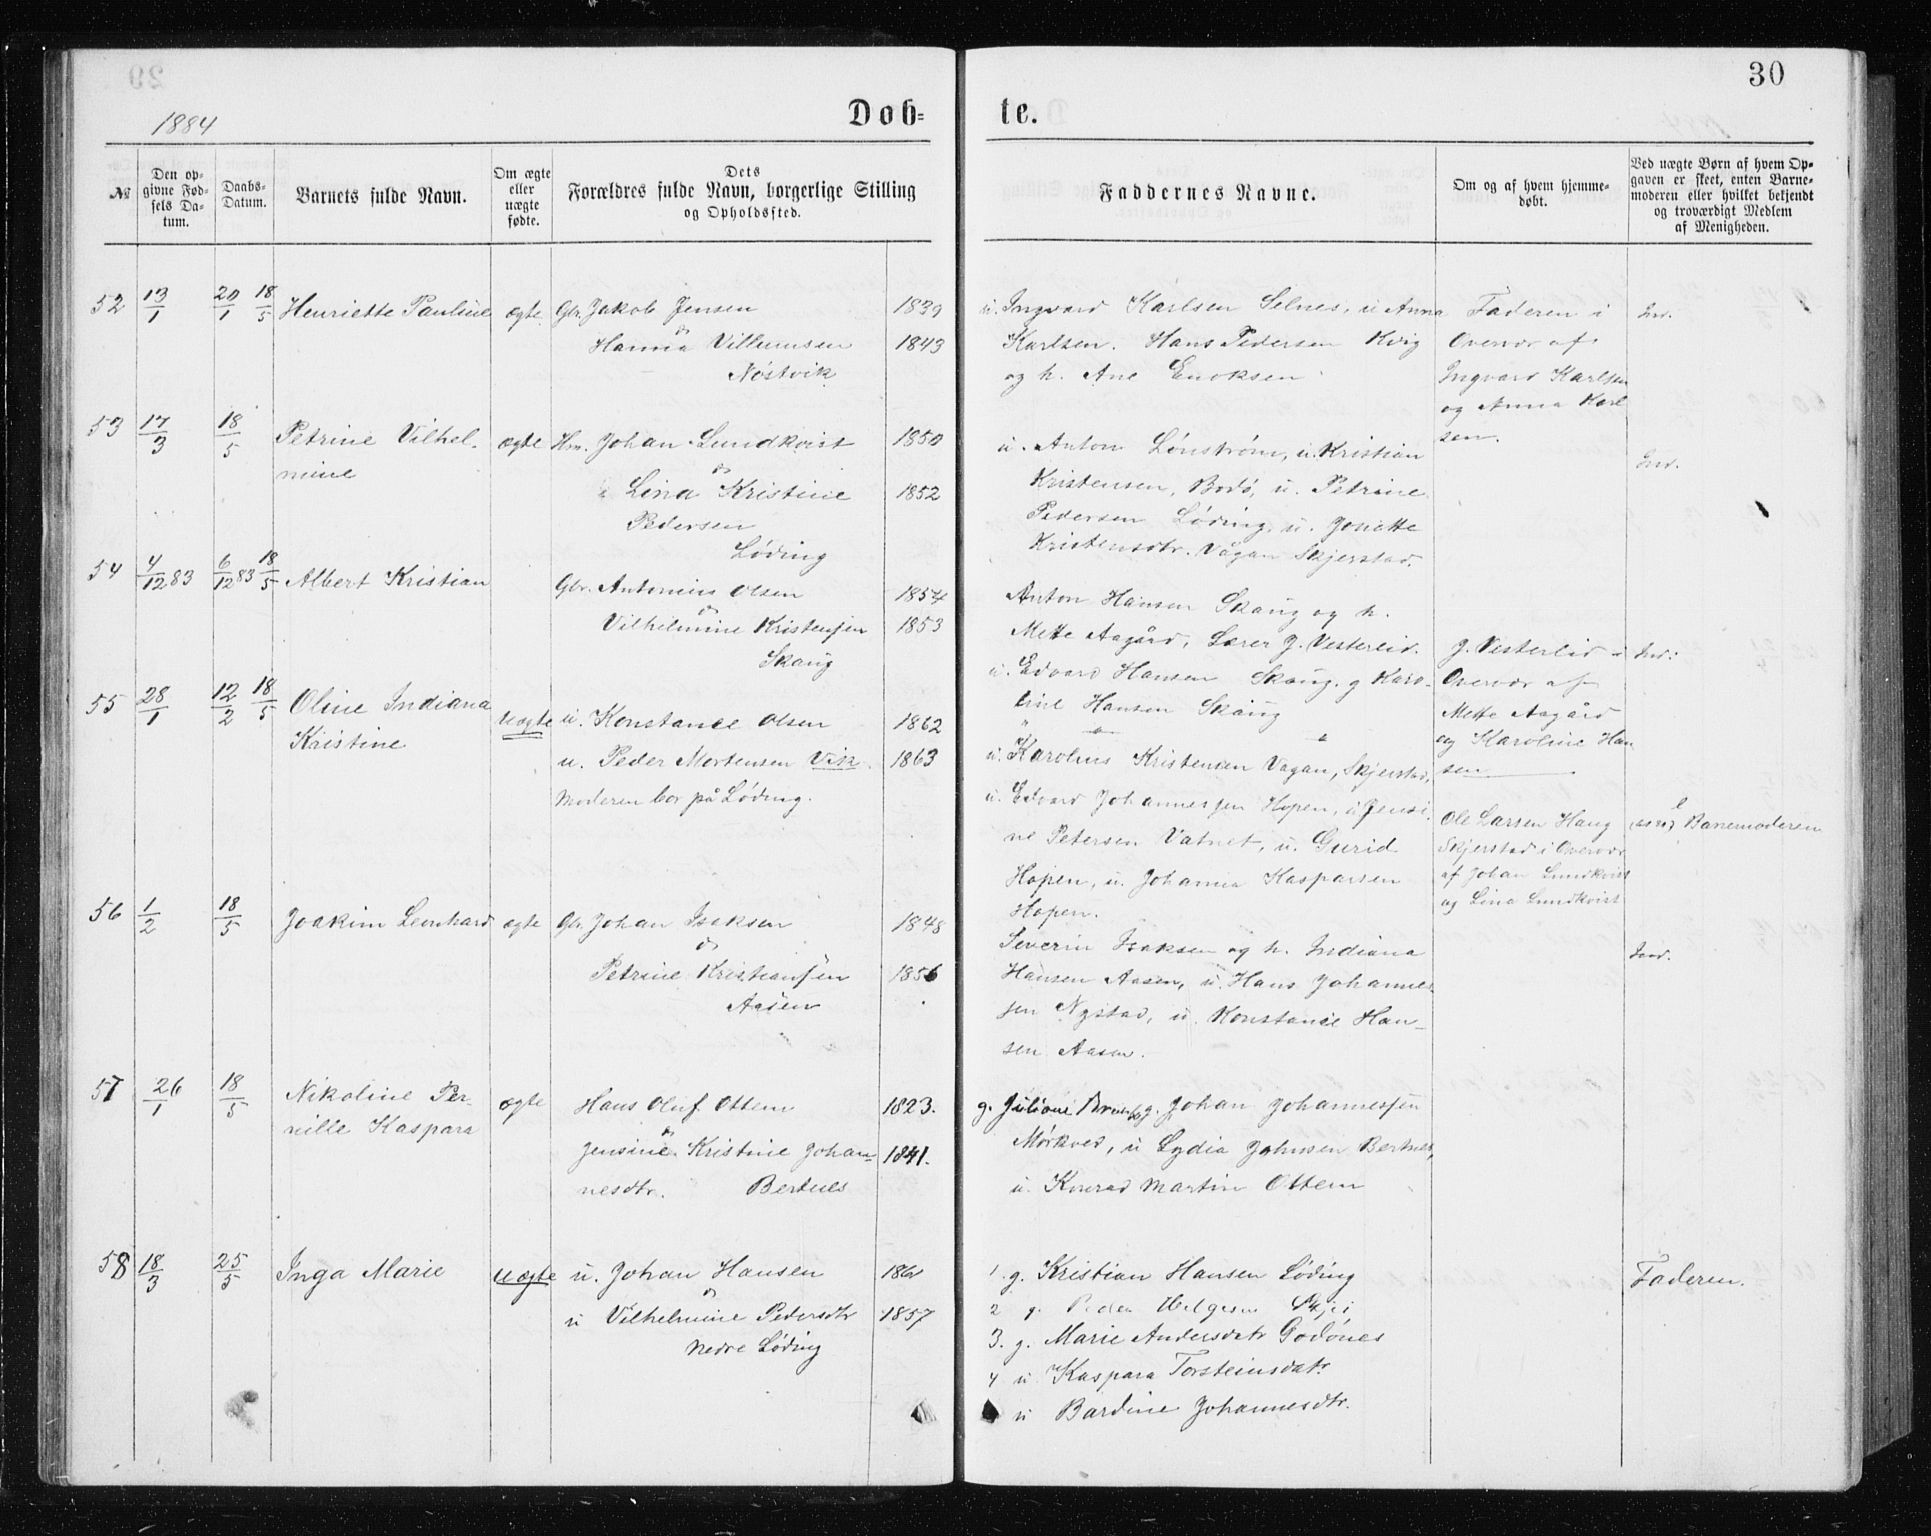 30
1884
Døb-
te.
№
Den op-
givne Fød-
sels Da-
tum.
Daabs-
Datum.
Barnets fulde Navn.
Om ægte
eller
uægte
fødte.
Dets
Forældres fulde Navn, borgerlige Stilling
og Opholdssted.
Faddernes Navne.
Om og af hvem hjemme-
døbt.
Ved uægte Børn af hvem Op-
gaven er skeet, enten Barne-
moderen eller hvilket bekjendt
og troværdigt Medlem
af Menigheden.
52 13/1 20/1 18/5 Henriette Pauline ægte Gbr. Jakob Jensen 1839
og
Hanna Villumsen 1843
Nøstvik
u. Ingvard Karlsen Selnes, u Anna
Karlsen. Hans Pedersen Kvig
og h. Ane Enoksen
Faderen i
Overvær af
Ingvard Karlsen
og Anna Karl
sen.
Ind.
53 17/3 18/5 Petrine Vilhel-
mine
ægte Hm. Johan Lundkvist 1850
og
Lina Kristine 1852
Pedersen
Løding
u. Anton Lønstrøm, u. Kristian
Kristensen, Bodø, u. Petrine
Pedersen Løding, u. Jonette
Kristensdtr. Vågan Skjerstad.
Ind.
54 4/12 83 6/12 83 18/5 Albert Kristian
Gbr. Antonius Olsen 1854
og
Vilhelmine Kristensen 1853
Skaug
Anton Hansen Skaug og h.
Mette Aagård, Lærer J. Vesterlid.
u. Edvard Hansen Skaug. g Karo-
line Hansen Skaug
J. Vesterlid i
Overvær af
Mette Aagård
og Karoline Han
sen
Ind.
55 28/1 12/2 18/5 Oline Indiana
Kristine
uægte u. Konstance Olsen 1862
u. Peder Mortensen Vik. 1863
Moderen bor på Løding.
u. Karolius Kristensen Vagan, Skjerstad,
u. Edvard Johannessen Hopen, u Jensi-
ne Petersen Vatnet, u. Gurid
Hopen, u. Johanna Kasparsen
Hopen.
Ole Larsen Haug
Skjerstad i Overvær
af Johan Lundkvist
og Lina Lundkvist
Barnemoderen
56 1/2 18/5 Joakim Leonhard ægte Gbr. Johan Isaksen 1848
og
Petrine Kristiansen 1856
Aasen
Severin Isaksen og h. Indiana
Hansen Aasen, u. Hans Johannes-
sen Nystad, u. Konstance Han-
sen Aasen.
Ind.
57 26/1 18/5 Nikoline Per-
nille Kaspara
ægte Hans Oluf Ottem 1823.
og
Jensine Kristine Johan- 1841.
nesdtr. Bertnes
g. Juliane g. Johan Johannessen
Mørkved, u Lydia Johnsen Bertnes,
u. Konrad Martin Ottem
58 18/3 25/5 Inga Marie uægte u. Johan Hansen 1861
og
u Vilhelmine Pedersdtr 1857
Nedre Løding
1. g. Kristian Hansen Løding
2 g. Peder Helgesen
3. g. Marie Andersdatr Godønes
4 u. Kaspara Torsteinsdatr.
u Bardine Johannesdtr.
Faderen.